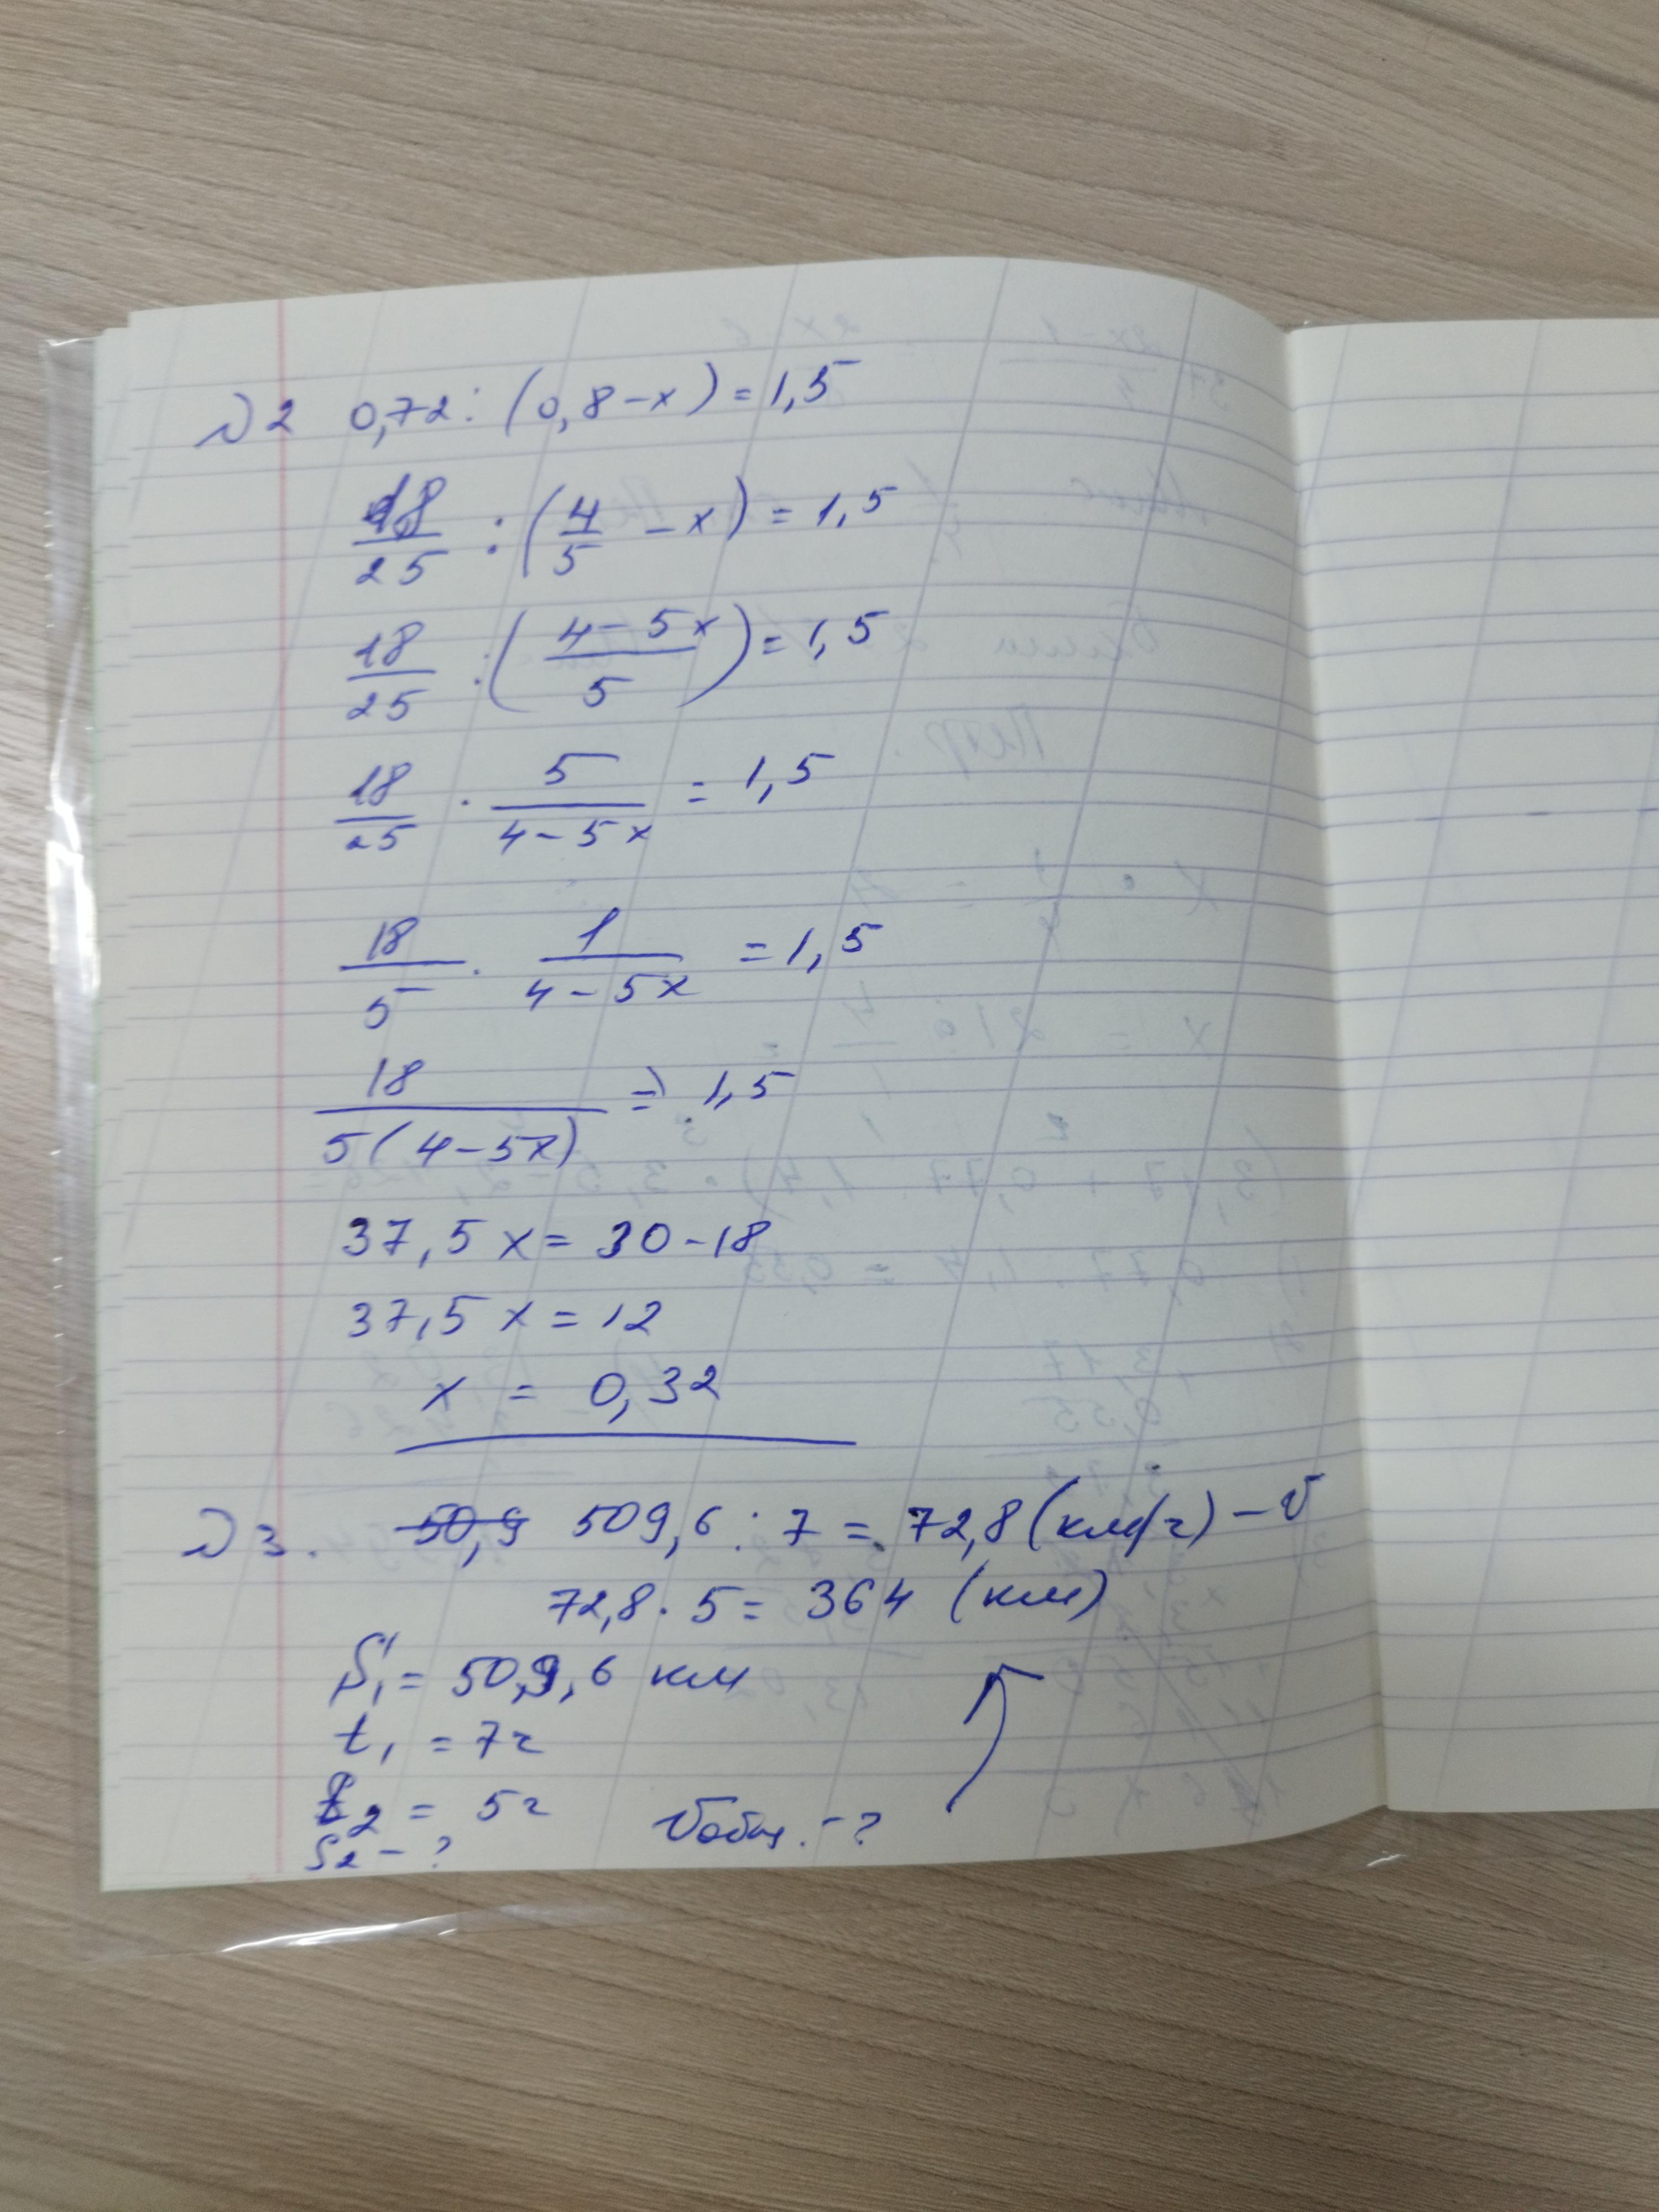 №2 0,72 : (0,8 – x) = 1,5
18/25 : (4/5 – x) = 1,5
18/25 : ((4 – 5x)/5) = 1,5
18/25 · 5/(4 – 5x) = 1,5
18/5 · 1/(4 – 5x) = 1,5
18/(5(4 – 5x)) = 1,5
37,5 x = 30 – 18
37,5 x = 12
x = 0,32
№3. 50,9 509,6 : 7 = 72,8 (км/ч) – v
72,8 · 5 = 364 (км)
S₁ = 509,6 км
t₁ = 7ч
t₂ = 5ч
S₂ – ? Vобщ. – ?